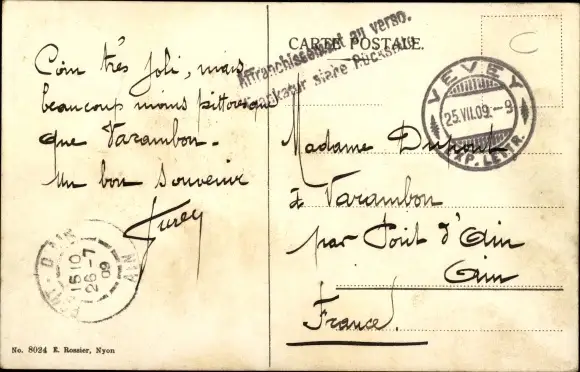 CARTE POSTALE.
Affranchissement au verso.
Frankatur siehe Rückseite
VEVEY
25.VII.09.-9
EXP. LETTR.
Coin très joli, mais
beaucoup moins pittoresque
que Varambon.
Un bon souvenir
Madame Dupont
à Varambon
par Pont d'Ain
Ain
France.
PONT-D'AIN
AIN
15 10
26-7
09
No. 8024 E. Rossier, Nyon